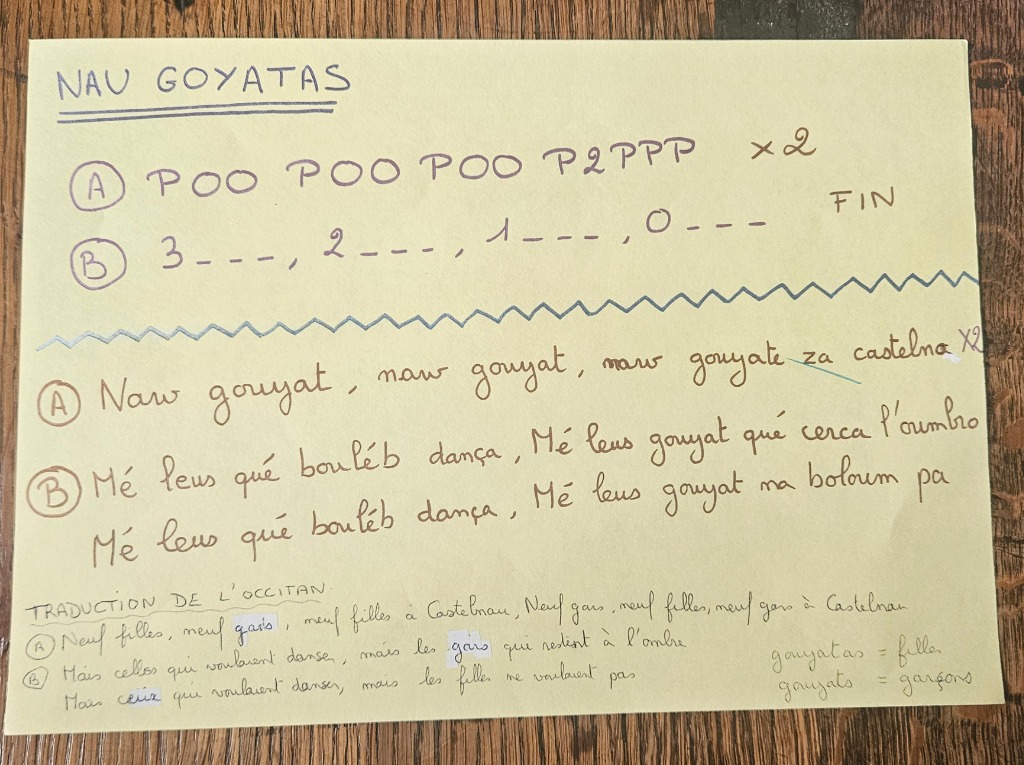 NAU GOYATAS
A POO POO POO P2PPP x2
B 3---, 2---, 1---, 0--- FIN
A Naw gouyat, naw gouyat, naw gouyate za castelna X2
B Mé leus qué bouléb dança, Mé leus gouyat qué cerca l'oumbro
Mé leus qué bouléb dança, Mé leus gouyat na boloum pa
TRADUCTION DE L'OCCITAN
A Neuf filles, neuf gars, neuf filles à Castelnau, Neuf gars, neuf filles, neuf gars à Castelnau
B Mais celles qui voulaient danser, mais les gars qui restent à l'ombre
Mais ceux qui voulaient danser, mais les filles ne voulaient pas
gouyatas = filles
gouyats = garçons